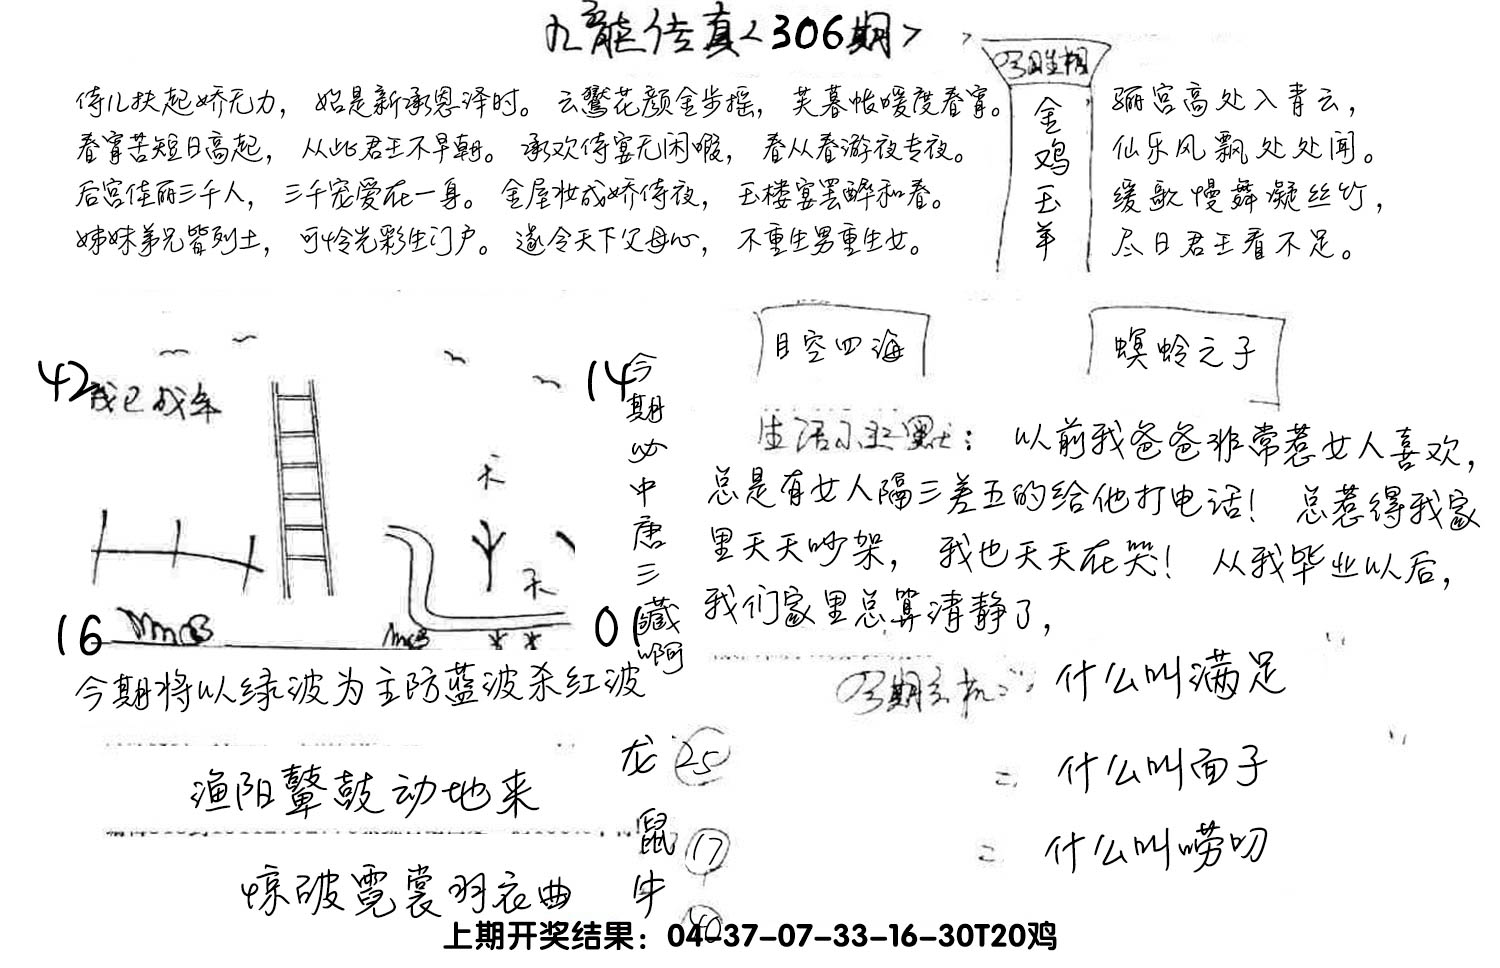 九龙传真<306期>
侍儿扶起娇无力，始是新承恩泽时。云鬓花颜金步摇，芙暮帐暖度春宵。
春宵苦短日高起，从此君王不早朝。承欢侍宴无闲暇，春从春游夜专夜。
后宫佳丽三千人，三千宠爱在一身。金屋妆成娇侍夜，玉楼宴罢醉和春。
姊妹弟兄皆列土，可怜光彩生门户。遂令天下父母心，不重生男重生女。
金鸡玉羊
骊宫高处入青云，
仙乐风飘处处闻。
缓歌慢舞凝丝竹，
尽日君王看不足。
42
我已成年
14
天
天
16
01
今期必中唐三藏啊
目空四海
螟蛉之子
生活小幽默：以前我爸爸非常惹女人喜欢，
总是有女人隔三差五的给他打电话！总惹得我家
里天天吵架，我也天天在哭！从我毕业以后，
我们家里总算清静了，
今期将以绿波为主防蓝波杀红波
今期玄机：什么叫满足
二 什么叫面子
二 什么叫唠叨
渔阳鼙鼓动地来
惊破霓裳羽衣曲
龙 25
鼠 17
牛 40
上期开奖结果：04-37-07-33-16-30T20鸡